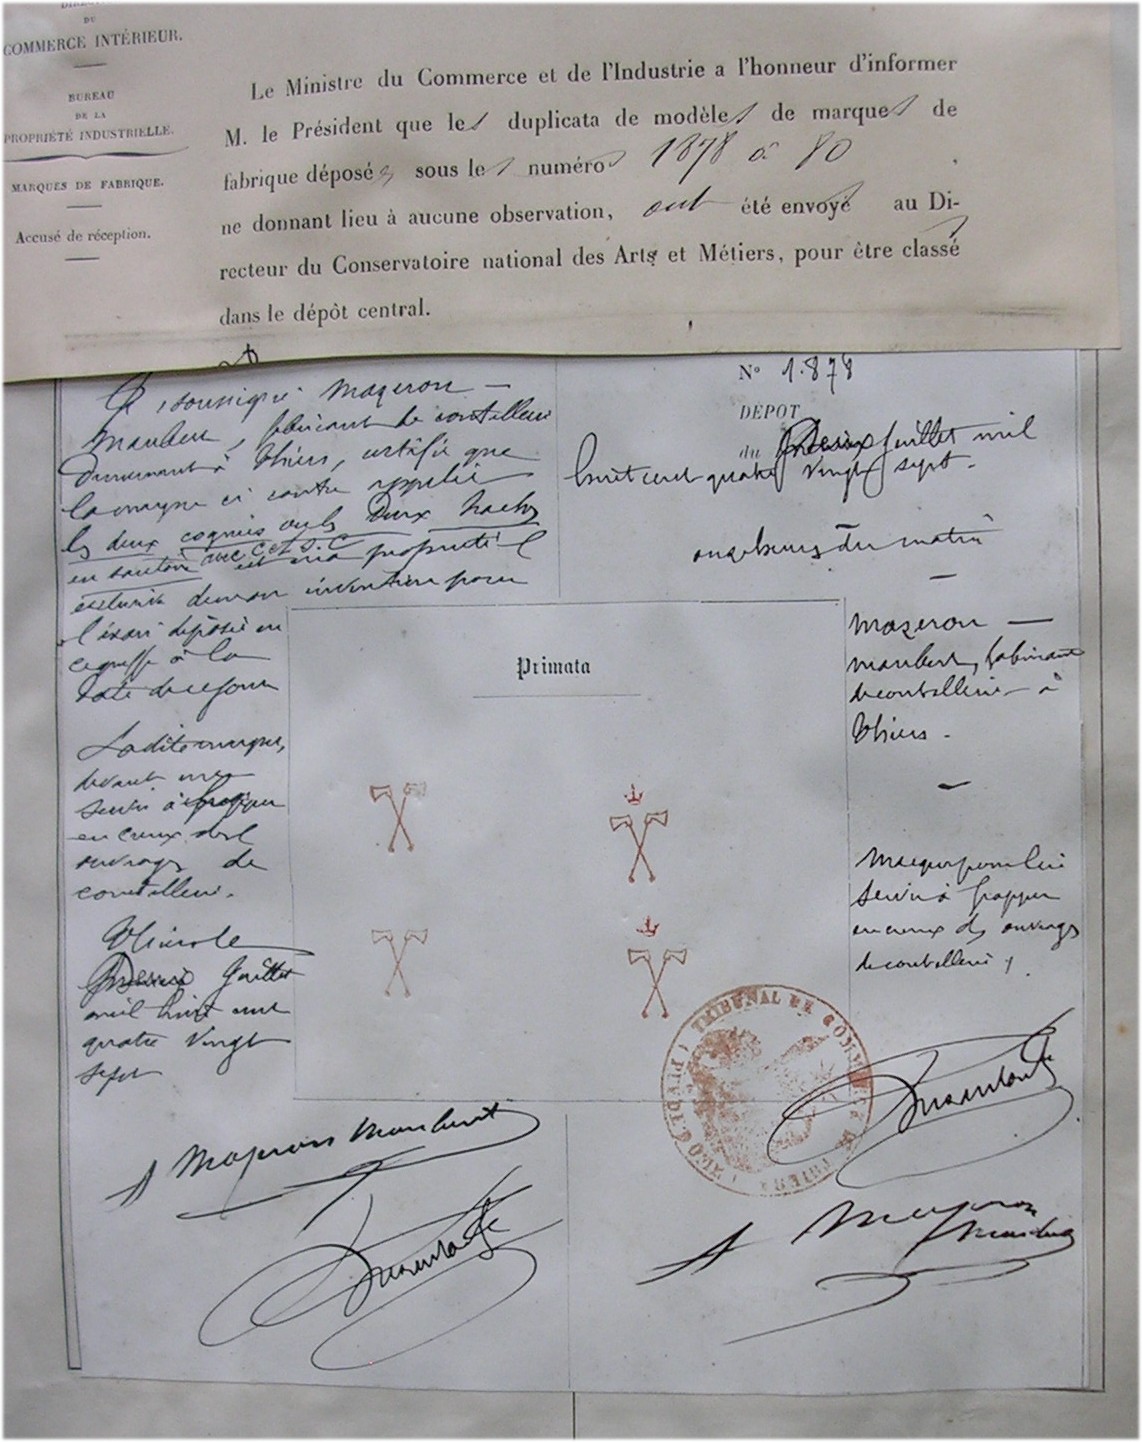 DU
COMMERCE INTÉRIEUR.
BUREAU
DE LA
PROPRIÉTÉ INDUSTRIELLE.
MARQUES DE FABRIQUE.
Accusé de réception.
Le Ministre du Commerce et de l'Industrie a l'honneur d'informer
M. le Président que les duplicata de modèles de marques de
fabrique déposés sous les numéros 1878 à 80
ne donnant lieu à aucune observation, ont été envoyés au Di-
recteur du Conservatoire national des Arts et Métiers, pour être classés
dans le dépôt central.
Je soussigné Mazeron —
Maubert, fabricant de coutellerie
demeurant à Thiers, certifie que
la marque ci contre appelée
les deux cognées ou les Deux haches
en sautoir avec C et S.C
est ma propriété
exclusive de mon invention pour
l'avoir déposée en
ce greffe à la
date de ce jour
La dite marque,
devant me
servir à frapper
en creux des
ouvrages de
coutellerie.
Thiers le
Juillet
mil huit cent
quatre vingt
sept
A Mazeron Maubert
Nº 1.878
DÉPÔT
du Juillet mil
huit cent quatre vingt sept.
onze heures du matin
—
Primata
Mazeron —
Maubert, fabricant
de coutellerie — à
Thiers.
—
Marque pour lui
servir à frapper
en creux des ouvrages
de coutellerie
TRIBUNAL DE COMMERCE DE THIERS (PUY-DE-DÔME)
A Mazeron
Maubert